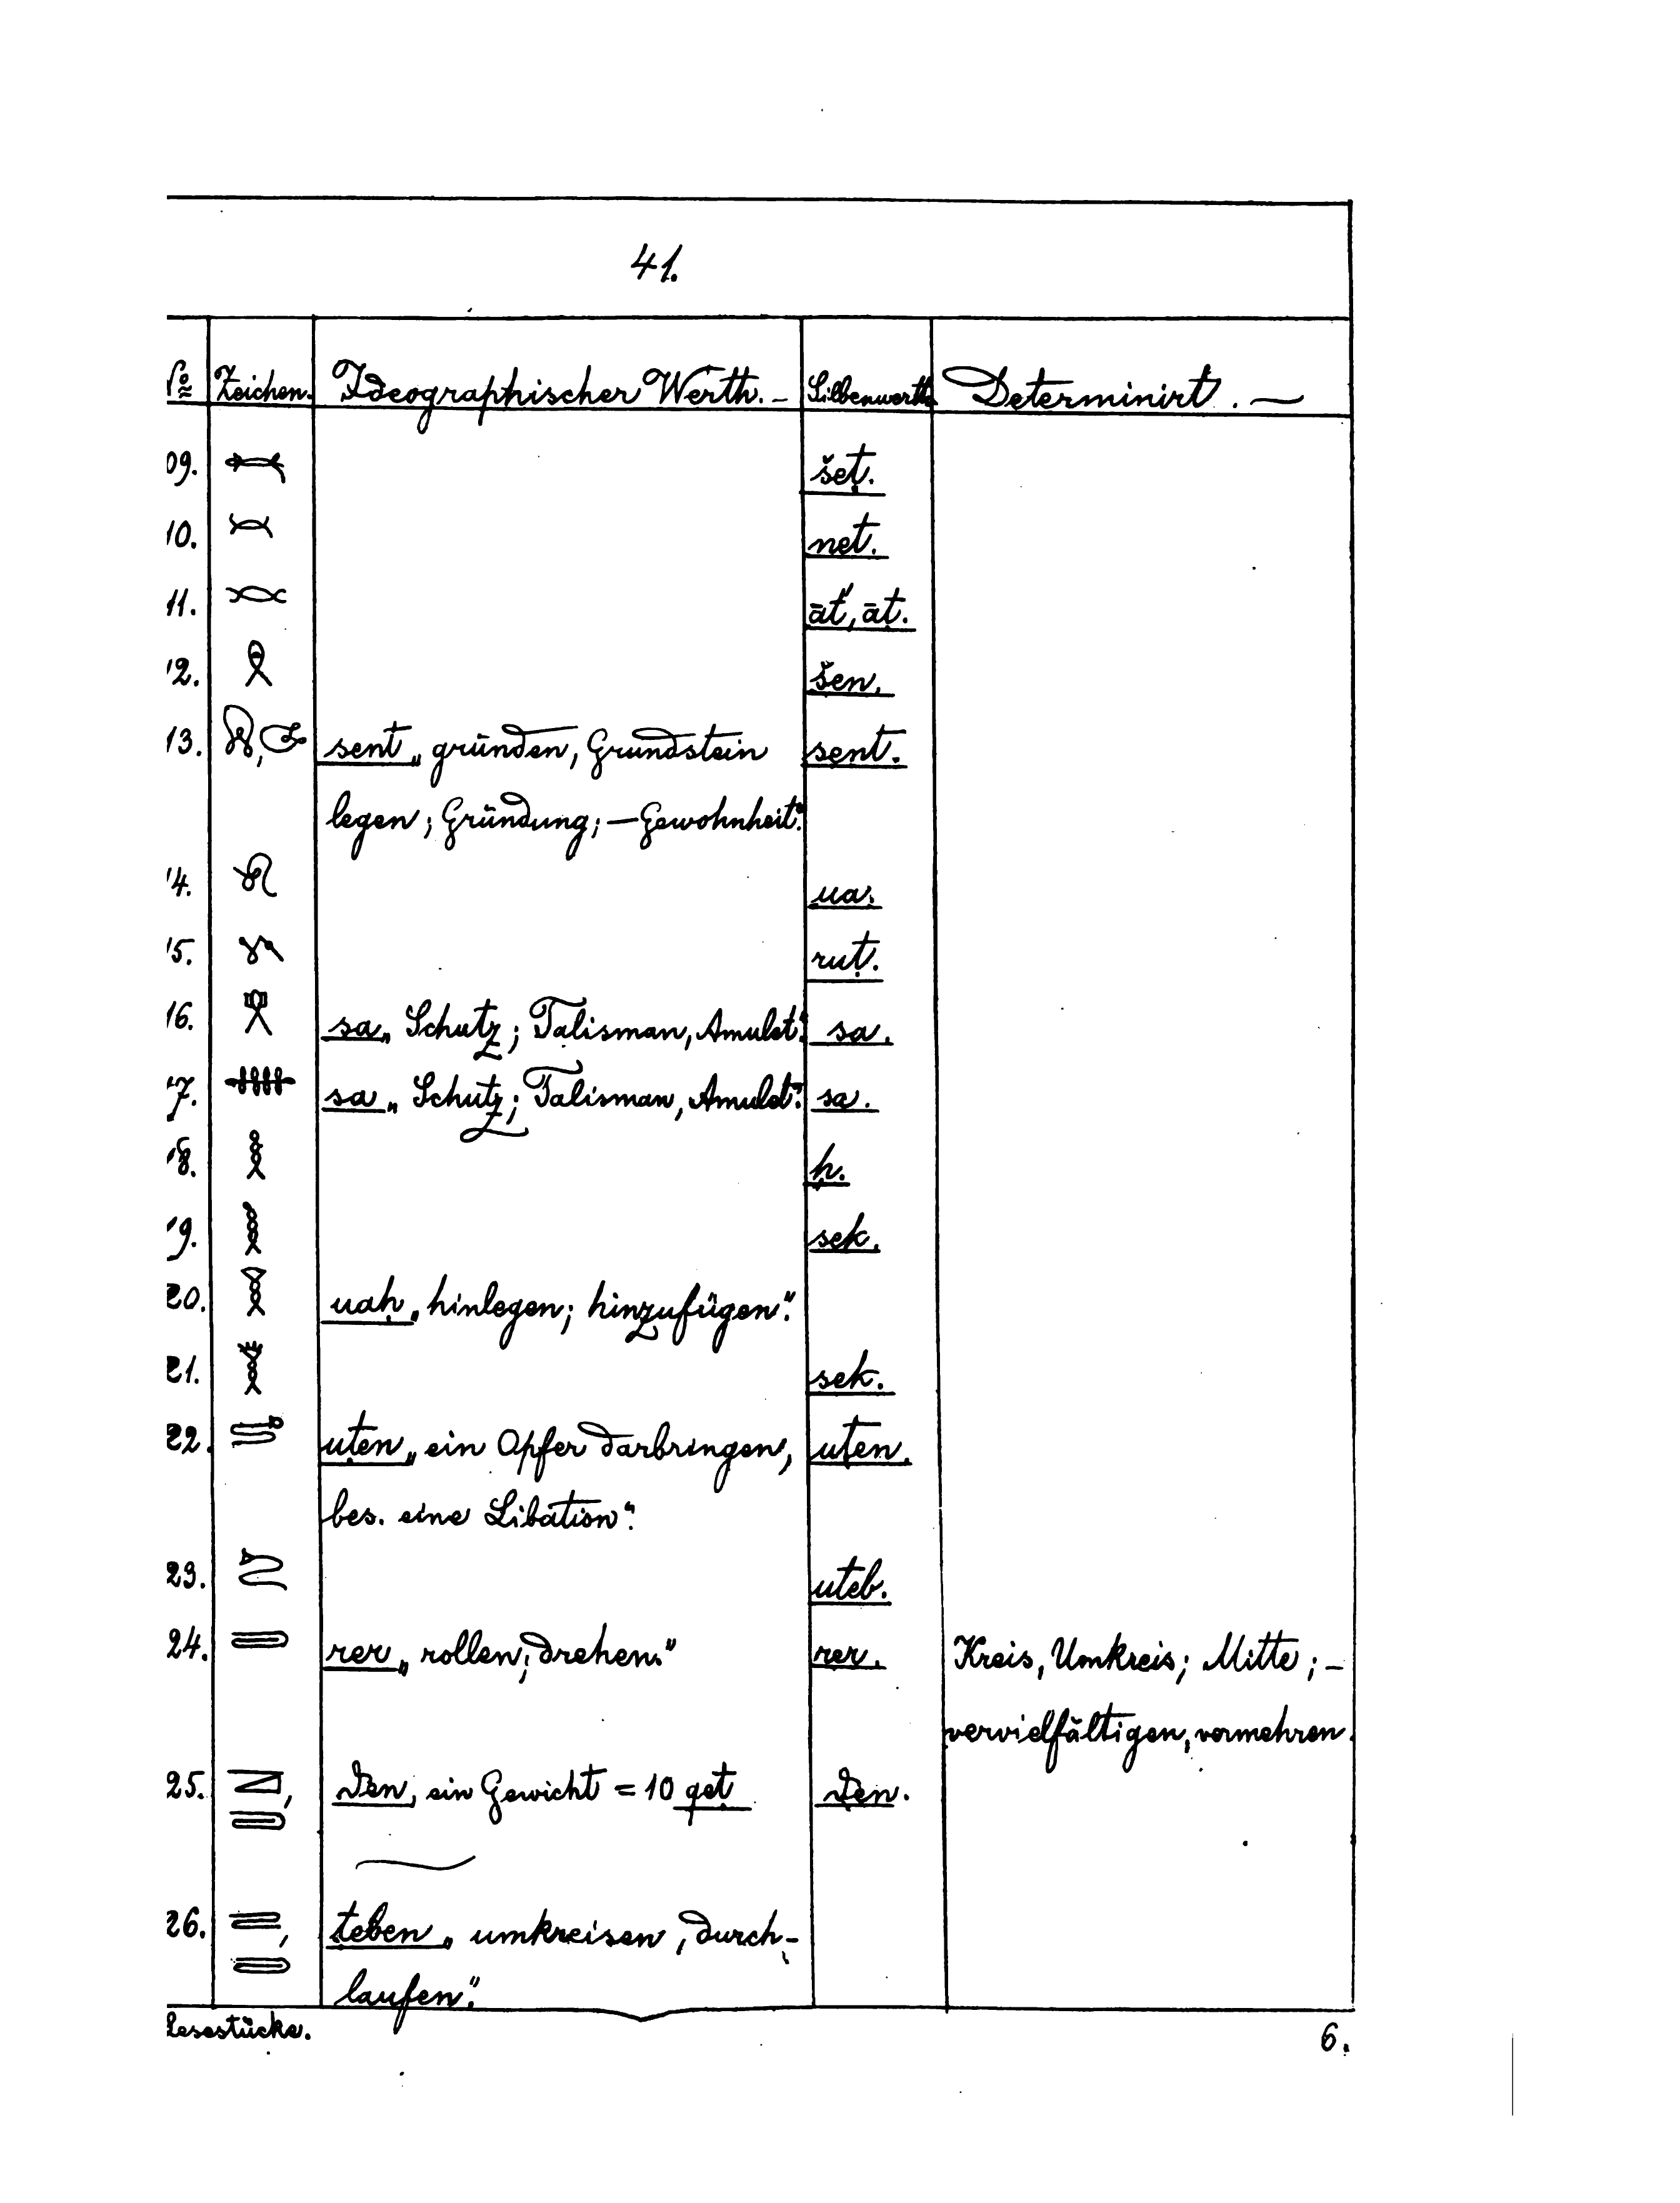 41.
№ Zeichen. Ideographischer Werth. – Silbenwerth. Determinirt. —
09. šeṭ.
10. net.
11. āt', āṭ.
12. šen.
13. , sent „gründen, Grundstein sent.
legen; Gründung; — Gewohnheit."
14. ua.
15. ruṭ.
16. sa „Schutz; Talisman, Amulet." sa.
17. sa „Schutz; Talisman, Amulet." sa.
18. ḥ.
19. sek.
20. uaḥ „hinlegen; hinzufügen."
21. sek.
22. uṭen „ein Opfer darbringen, uṭen.
bes. eine Libation."
23. uteb.
24. rer „rollen; drehen." rer. Kreis, Umkreis; Mitte; –
vervielfältigen, vermehren.
25. , Ten, ein Gewicht = 10 qeṭ Ten.
26. , ṭeben „umkreisen, durch-
laufen."
Lesestücke. 6.